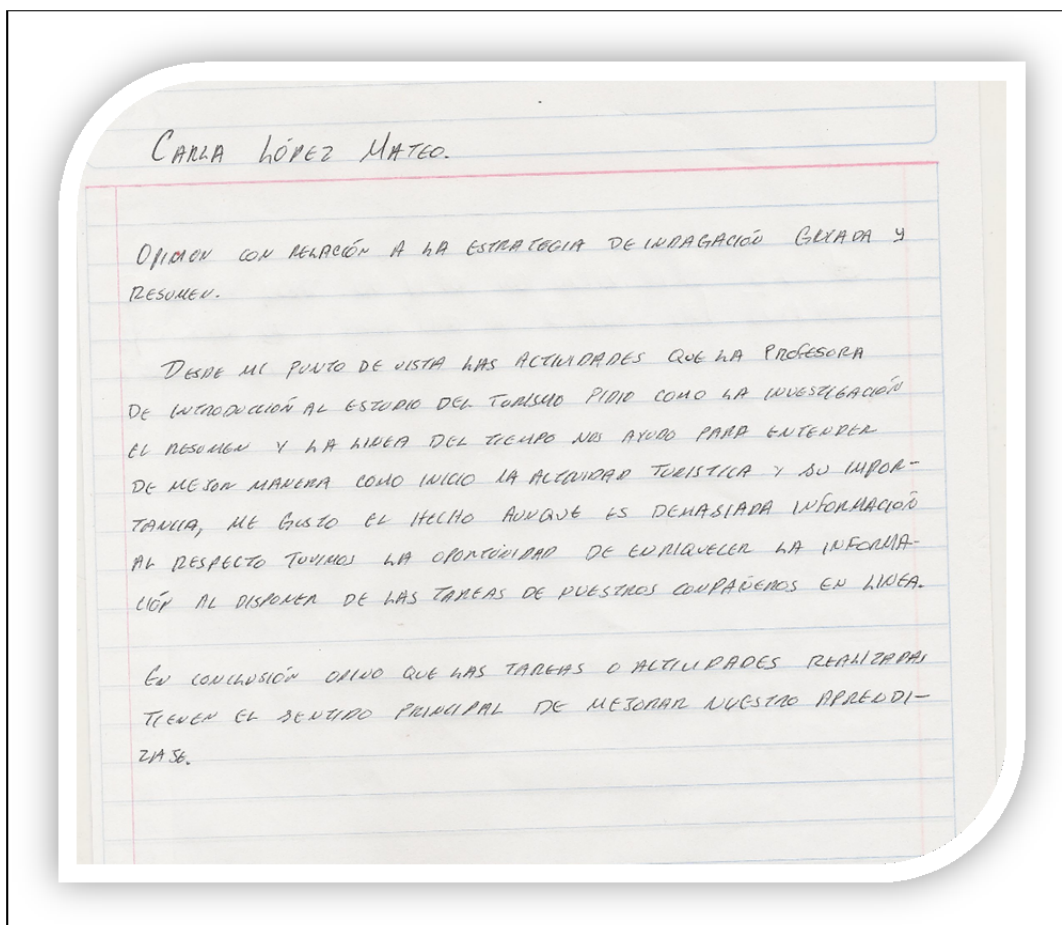 CARLA LÓPEZ MATEO.
OPINION CON RELACIÓN A LA ESTRATEGIA DE INDAGACIÓN GUIADA Y
RESUMEN.
DESDE MI PUNTO DE VISTA LAS ACTIVIDADES QUE LA PROFESORA
DE INTRODUCCIÓN AL ESTUDIO DEL TURISMO PIDIO COMO LA INVESTIGACIÓN
EL RESUMEN Y LA LINEA DEL TIEMPO NOS AYUDO PARA ENTENDER
DE MEJOR MANERA COMO INICIO LA ACTIVIDAD TURISTICA Y SU IMPOR-
TANCIA, ME GUSTO EL HECHO AUNQUE ES DEMASIADA INFORMACIÓN
AL RESPECTO TUVIMOS LA OPORTUNIDAD DE ENRIQUECER LA INFORMA-
CIÓN AL DISPONER DE LAS TAREAS DE NUESTROS COMPAÑEROS EN LINEA.
EN CONCLUSIÓN OPINO QUE LAS TAREAS O ACTIVIDADES REALIZADAS
TIENEN EL SENTIDO PRINCIPAL DE MEJORAR NUESTRO APRENDI-
ZAJE.